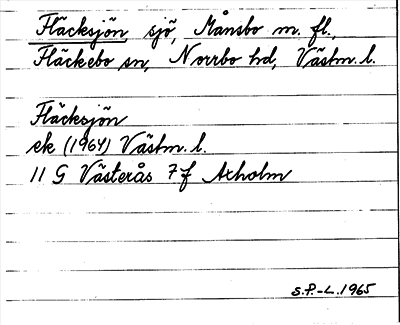 Fläcksjön, sjö, Månsbo m. fl.,
Fläckebo sn, Norrbo hd, Västm. l.
Fläcksjön
ek (1964) Västm. l.
11 G Västerås 7f Axholm
S.P.-L. 1965